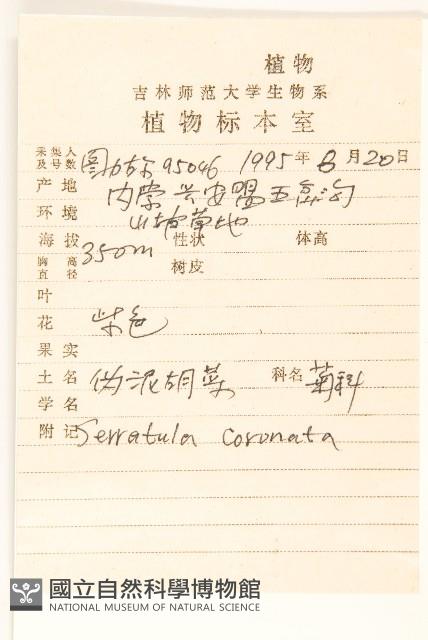 植物
吉林师范大学生物系
植物标本室
采集人及号数 图力古尔 95046 1995年8月20日
产地 内蒙兴安盟五岔沟
环境 山坡草地
海拔 350m 性状 体高
胸高直径 树皮
叶
花 紫色
果实
土名 伪泥胡菜 科名 菊科
学名
附记 Serratula coronata
國立自然科學博物館
NATIONAL MUSEUM OF NATURAL SCIENCE